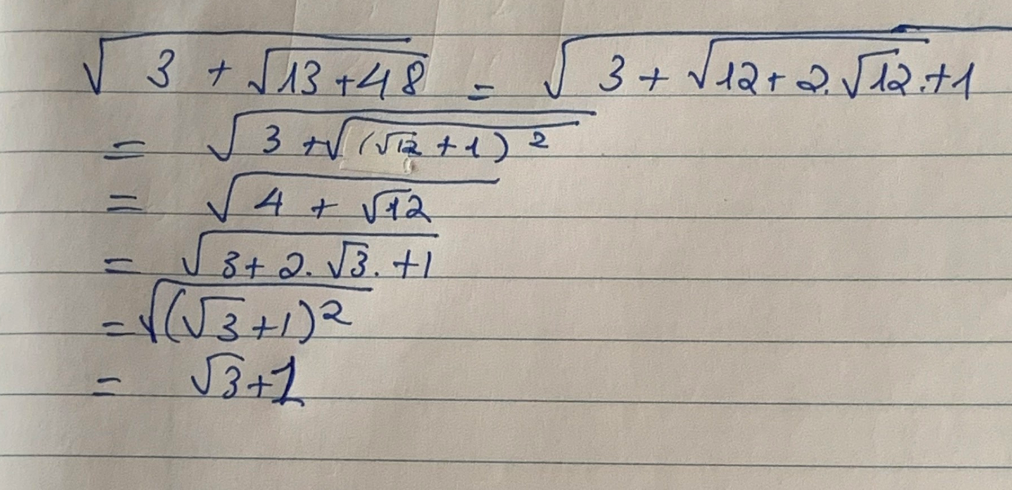 √(3 + √(13+48)) = √(3 + √(12+2.√12.+1))
= √(3 + √((√12 + 1)²))
= √(4 + √12)
= √(3+ 2. √3. +1)
= √((√3+1)²)
= √3+1